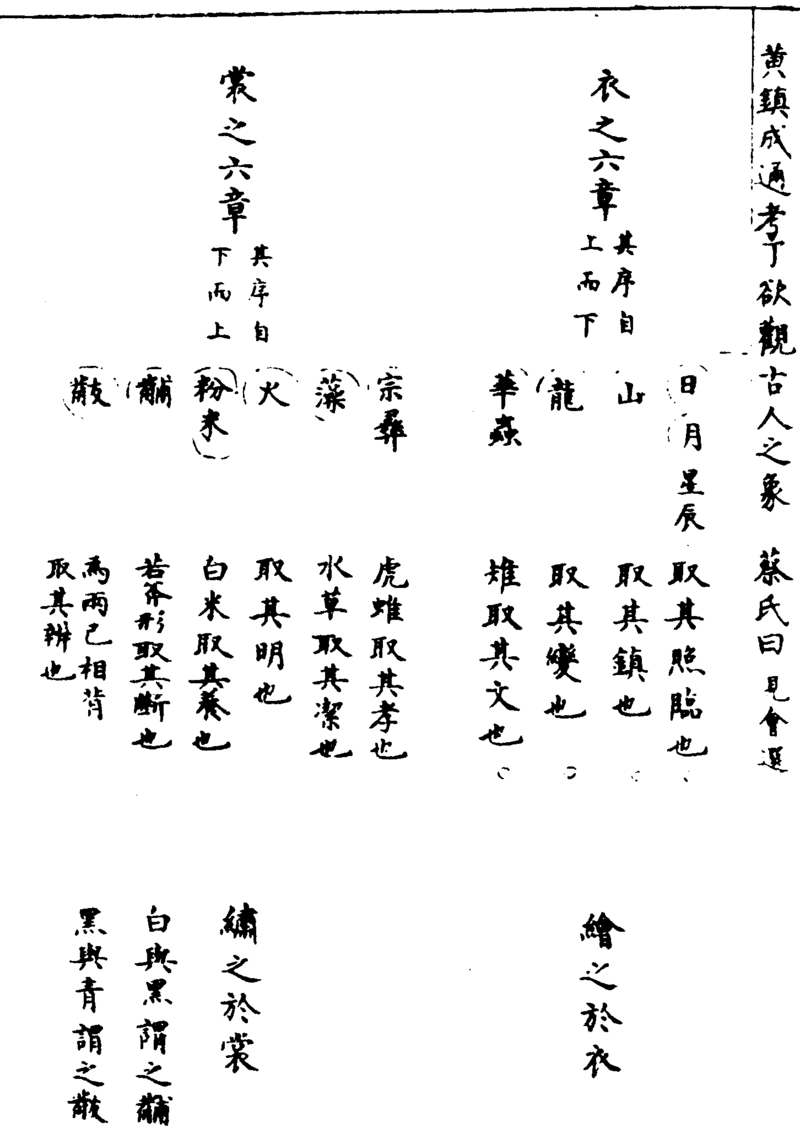 黄鎮成通考丁欲觀古人之象 蔡氏曰 見會選
衣之六章 其序自上而下
日月星辰 取其照臨也
山 取其鎮也
龍 取其變也
華蟲 雉取其文也
繪之於衣
裳之六章 其序自下而上
宗彝 虎蜼取其孝也
藻 水草取其潔也
火 取其明也
粉米 白米取其養也
黼 若斧形取其斷也
黻 為兩已相背取其辨也
繡之於裳
白與黑謂之黼
黑與青謂之黻